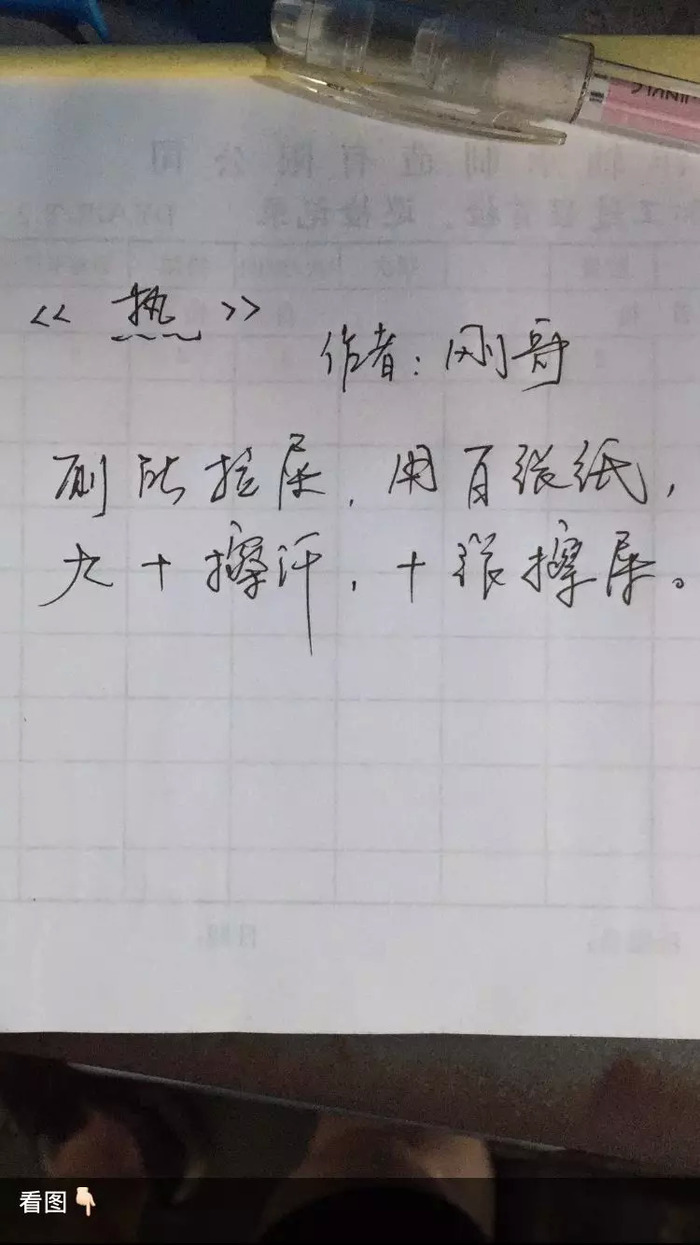 《热》
作者：刚哥
厕所拉屎，用百张纸，
九十擦汗，十张擦屎。
看图👇🏻